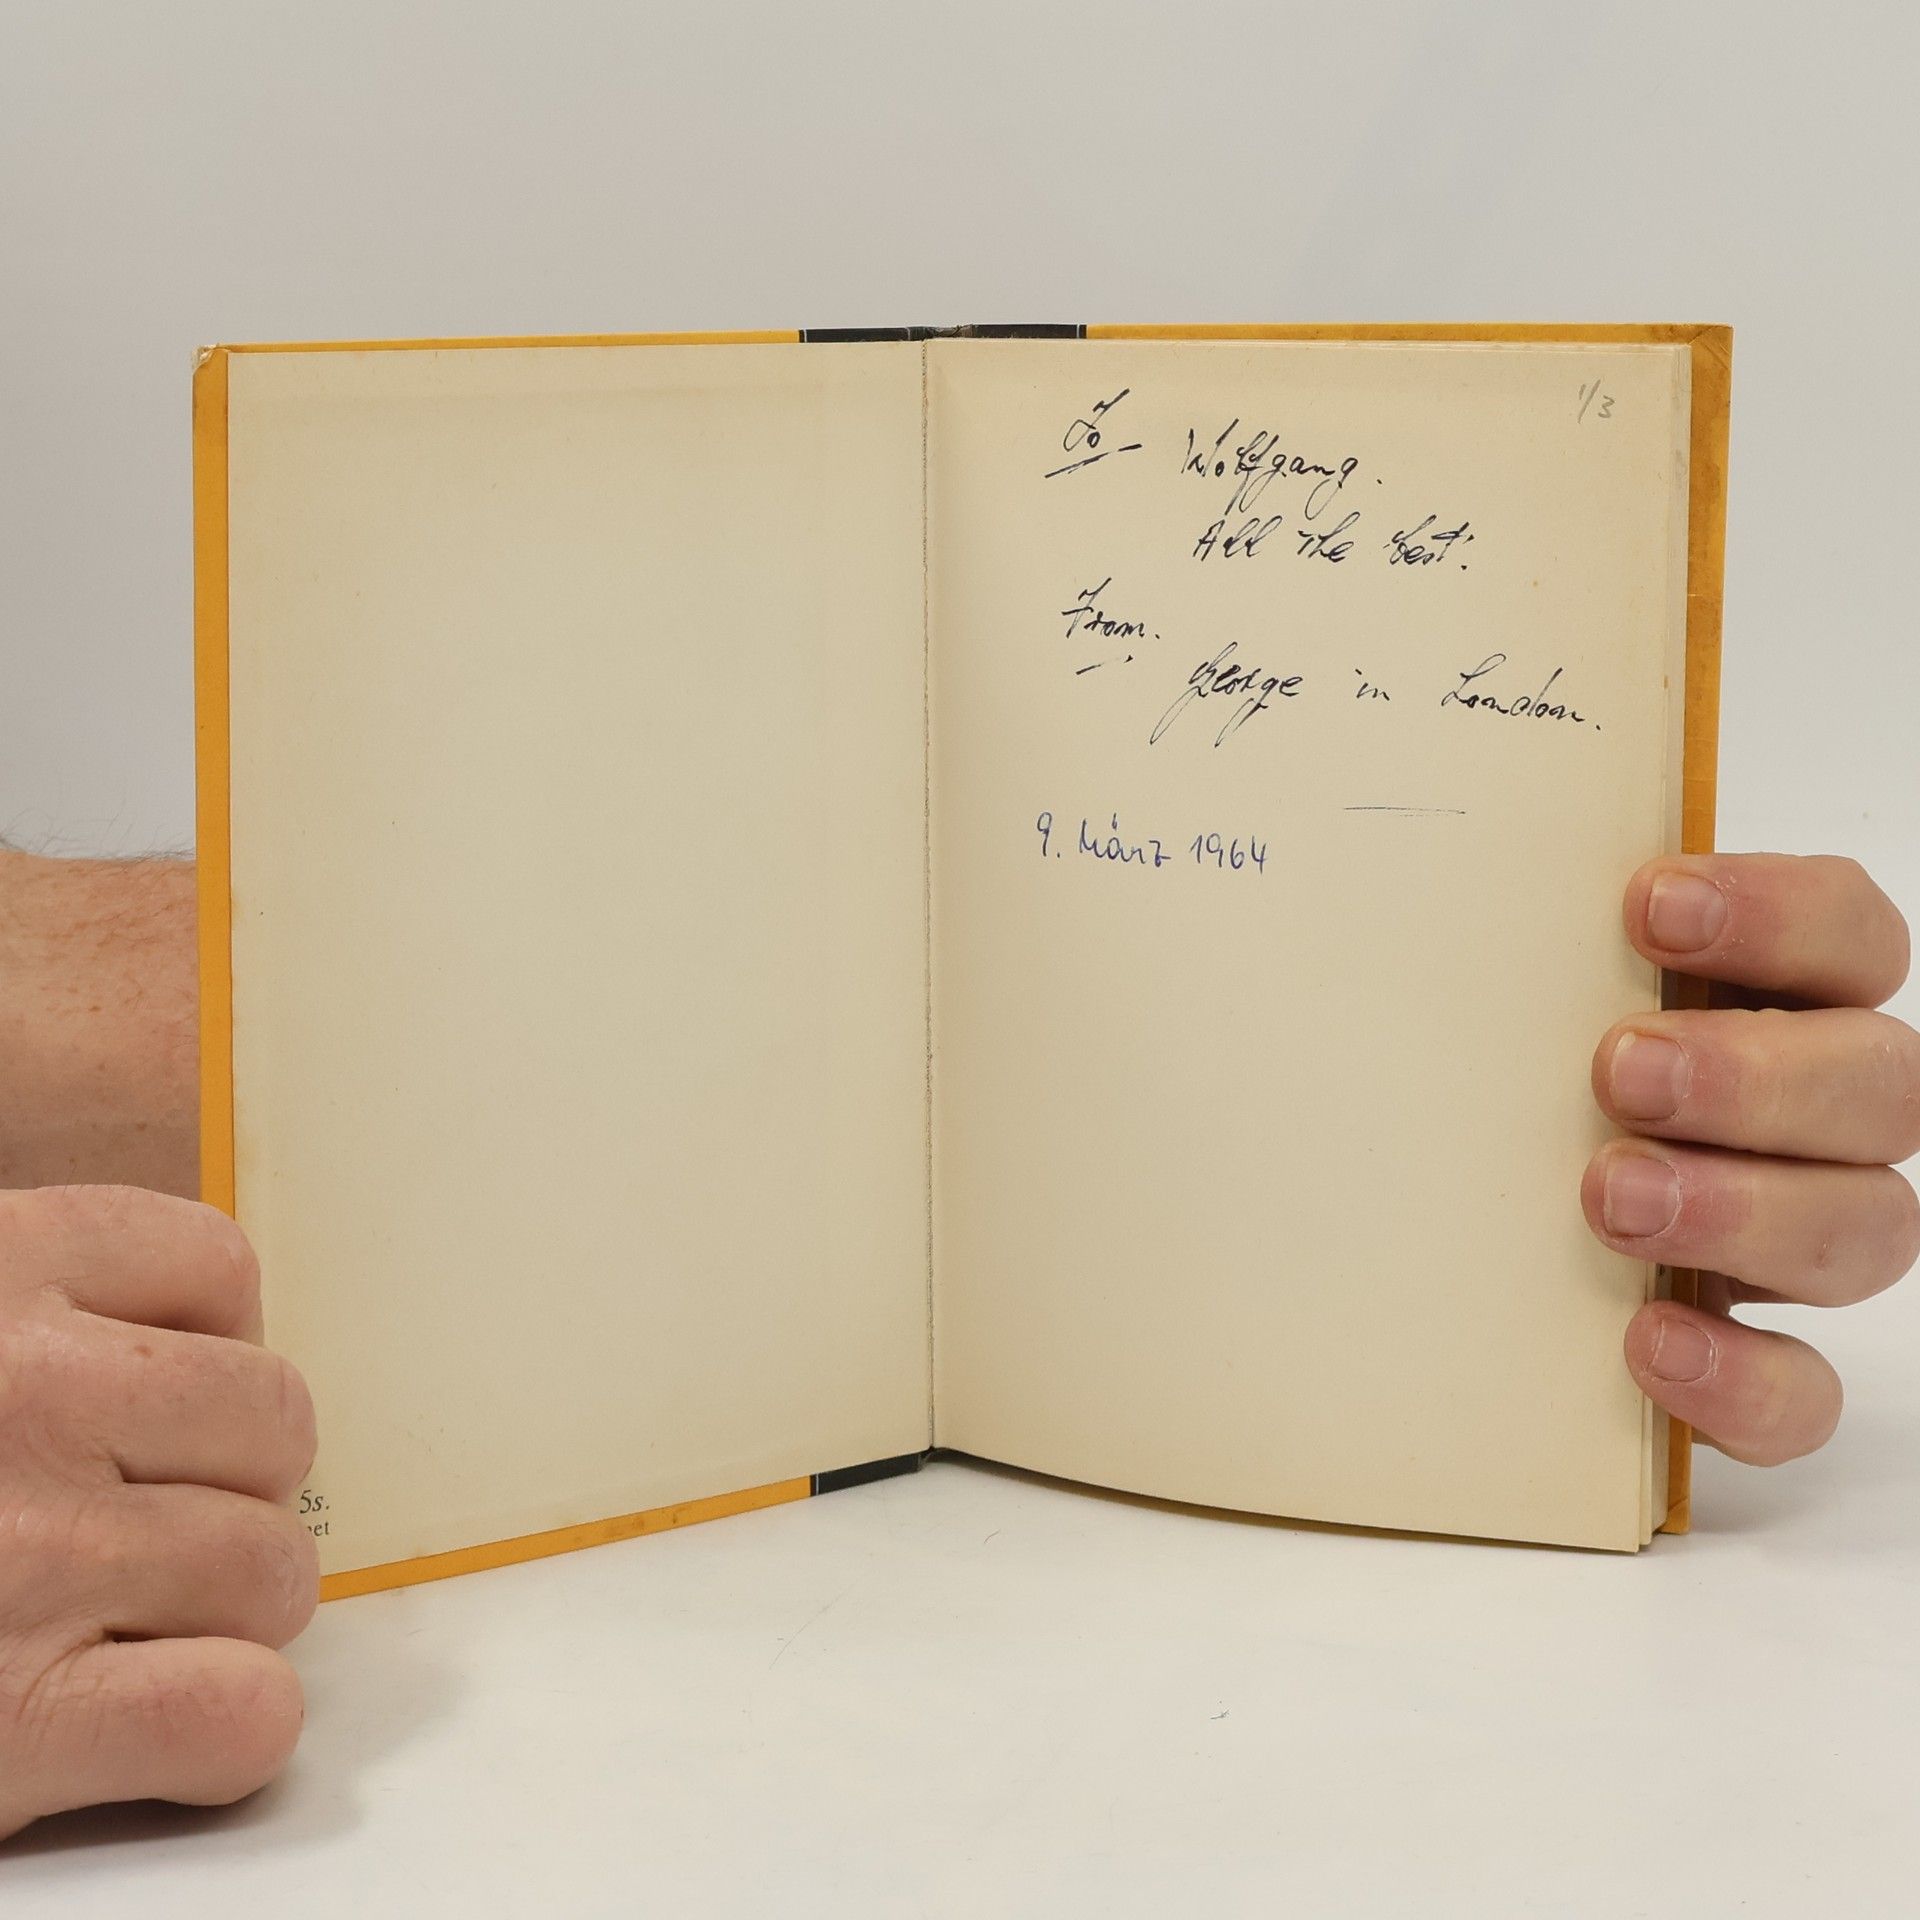 1/3
To Wolfgang.
All the best!
From.
George in London.
9. März 1964
5s.
net